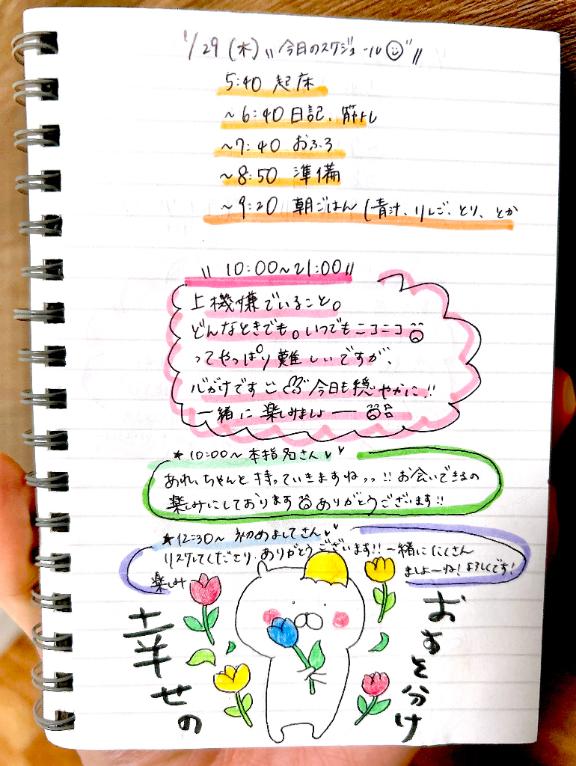 1/29 (木) "今日のスケジュール"
5:40 起床
~6:40 日記、筋トレ
~7:40 おふろ
~8:50 準備
~9:20 朝ごはん (青汁、リンゴ、とり、とか
10:00~21:00
上機嫌でいること。
どんなときでも。いつでもニコニコ
ってやっぱり難しいですが、
心がけです 今日も穏やかに!!
一緒に楽しみましょ——
★10:00~ 本指名さん
あれ、ちゃんと持っていきますねっっ!! お会いできるの
楽しみにしております ありがとうございます!!
★12:30~ 初めましてさん
リスクしてくださり、ありがとうございます!! 一緒にたくさん
楽しみ ましょーね! よろしくです!
幸せの
おすそ分け